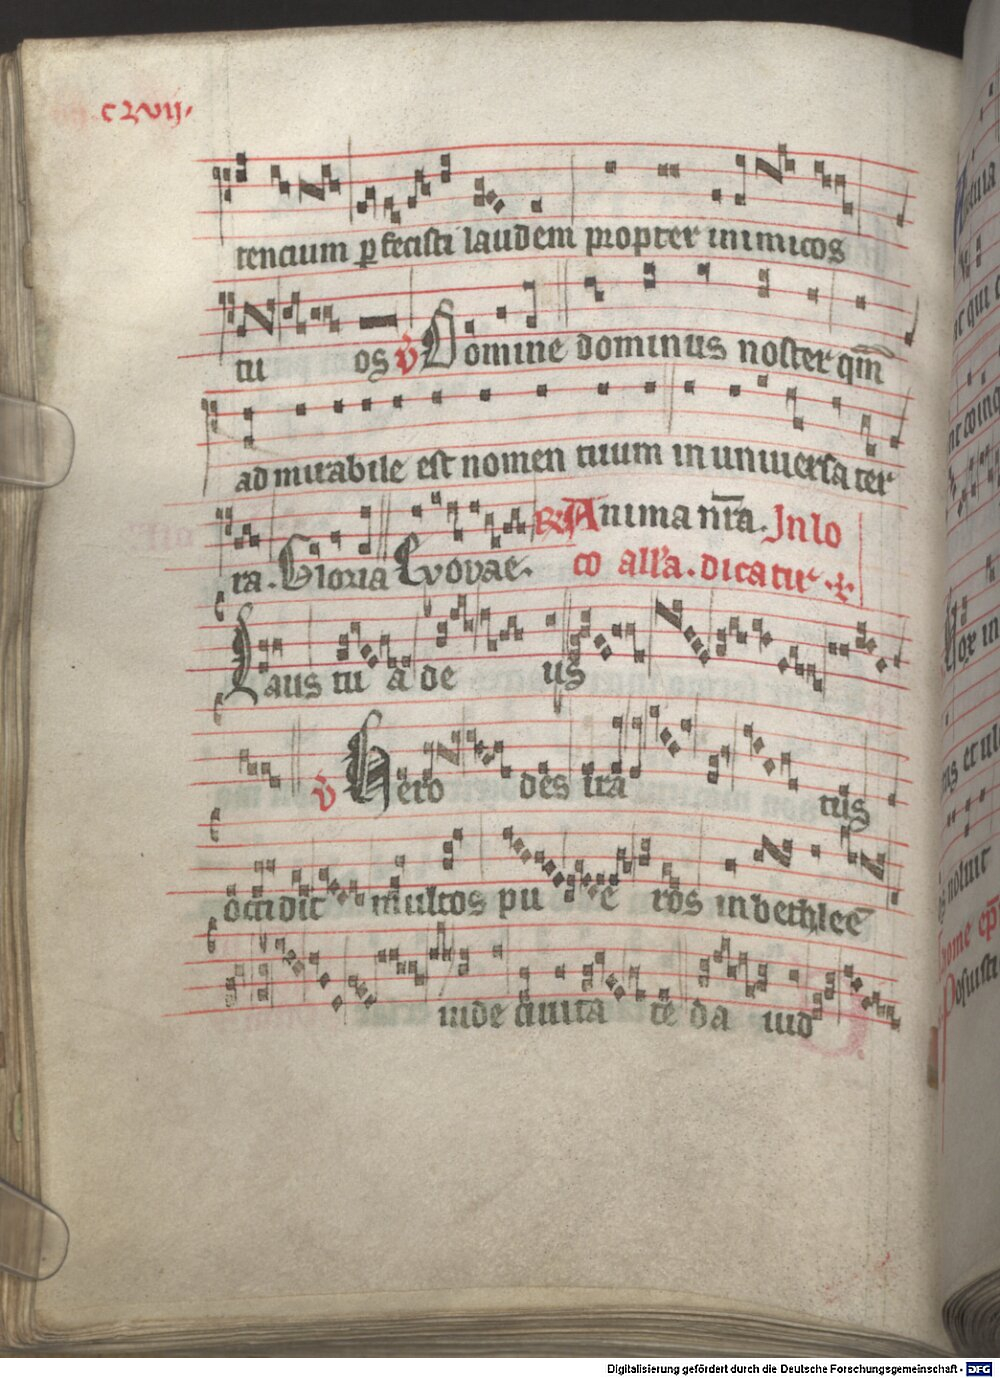 clvii.
tencium perfecisti laudem propter inimicos
tu os ν̃ Domine dominus noster qm̄
admirabile est nomen tuum in universa ter
ra. Gloria Evovae. R̃ Anima nr̄a. In lo
co all'a. dicatur.
Laus tu a de us
ν̃ Herodes ira tus
occidit multos pu e ros in bethlee
iude civita te da uid
Digitalisierung gefördert durch die Deutsche Forschungsgemeinschaft - DFG